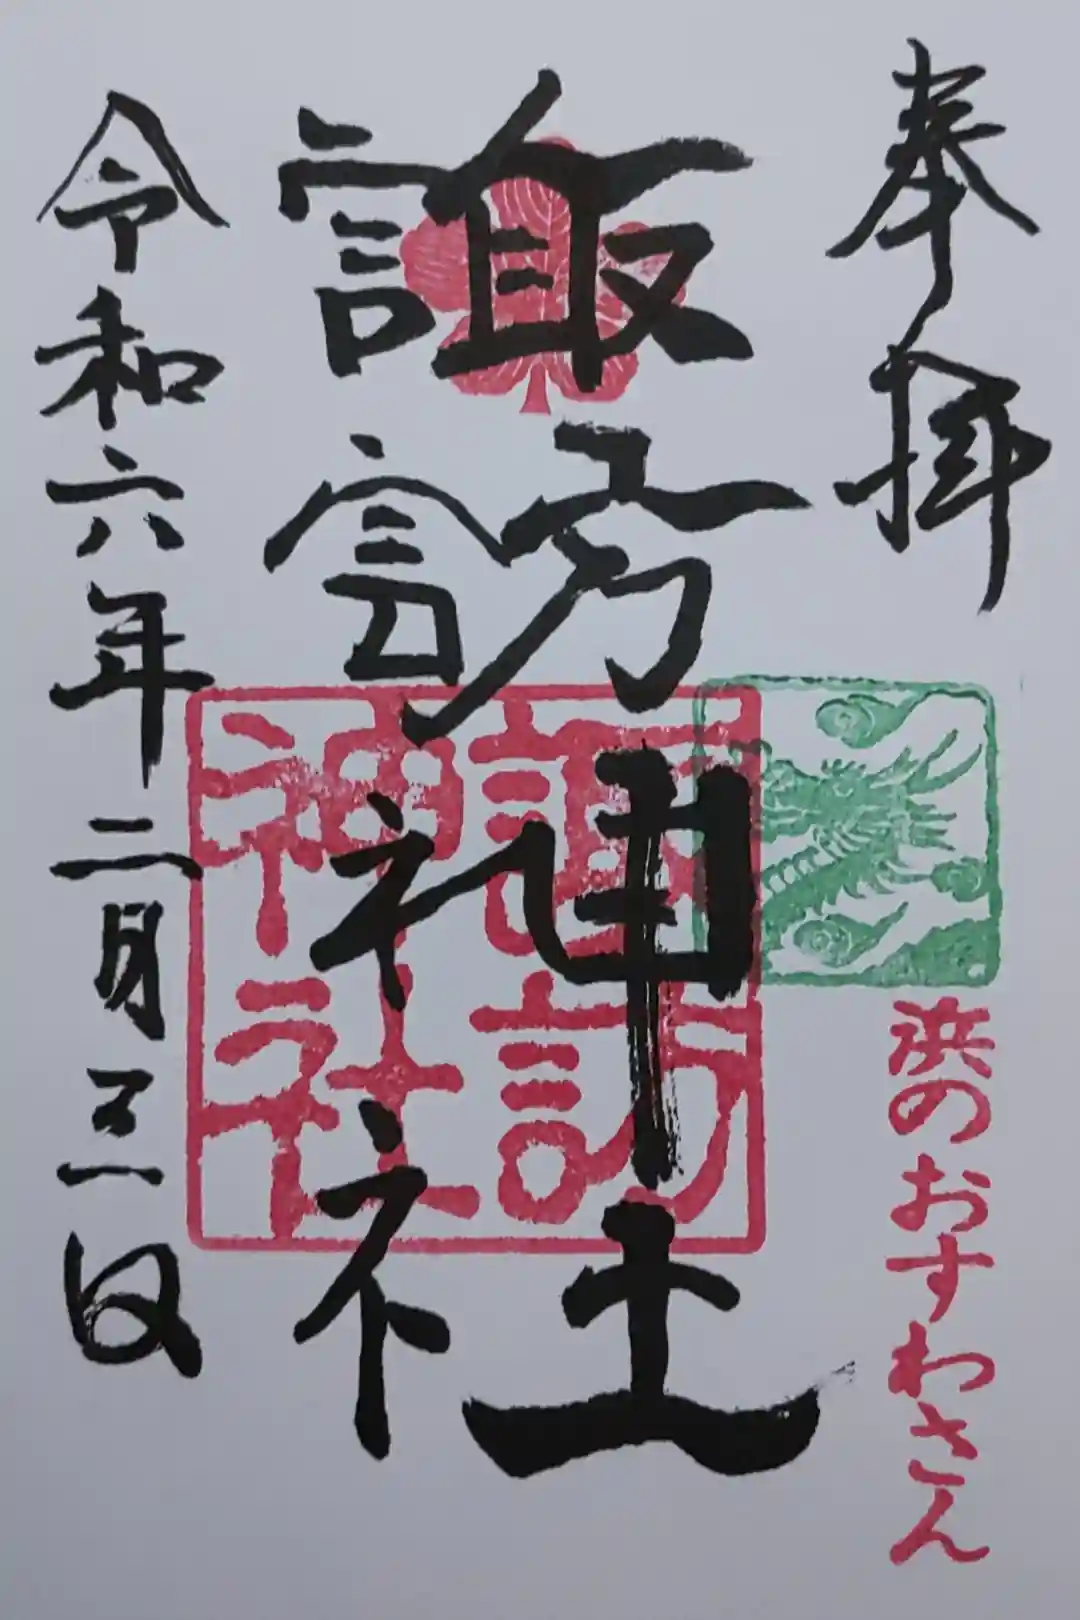 奉拝
浜のおすわさん
諏訪神社
諏訪
神社
令和六年二月三日